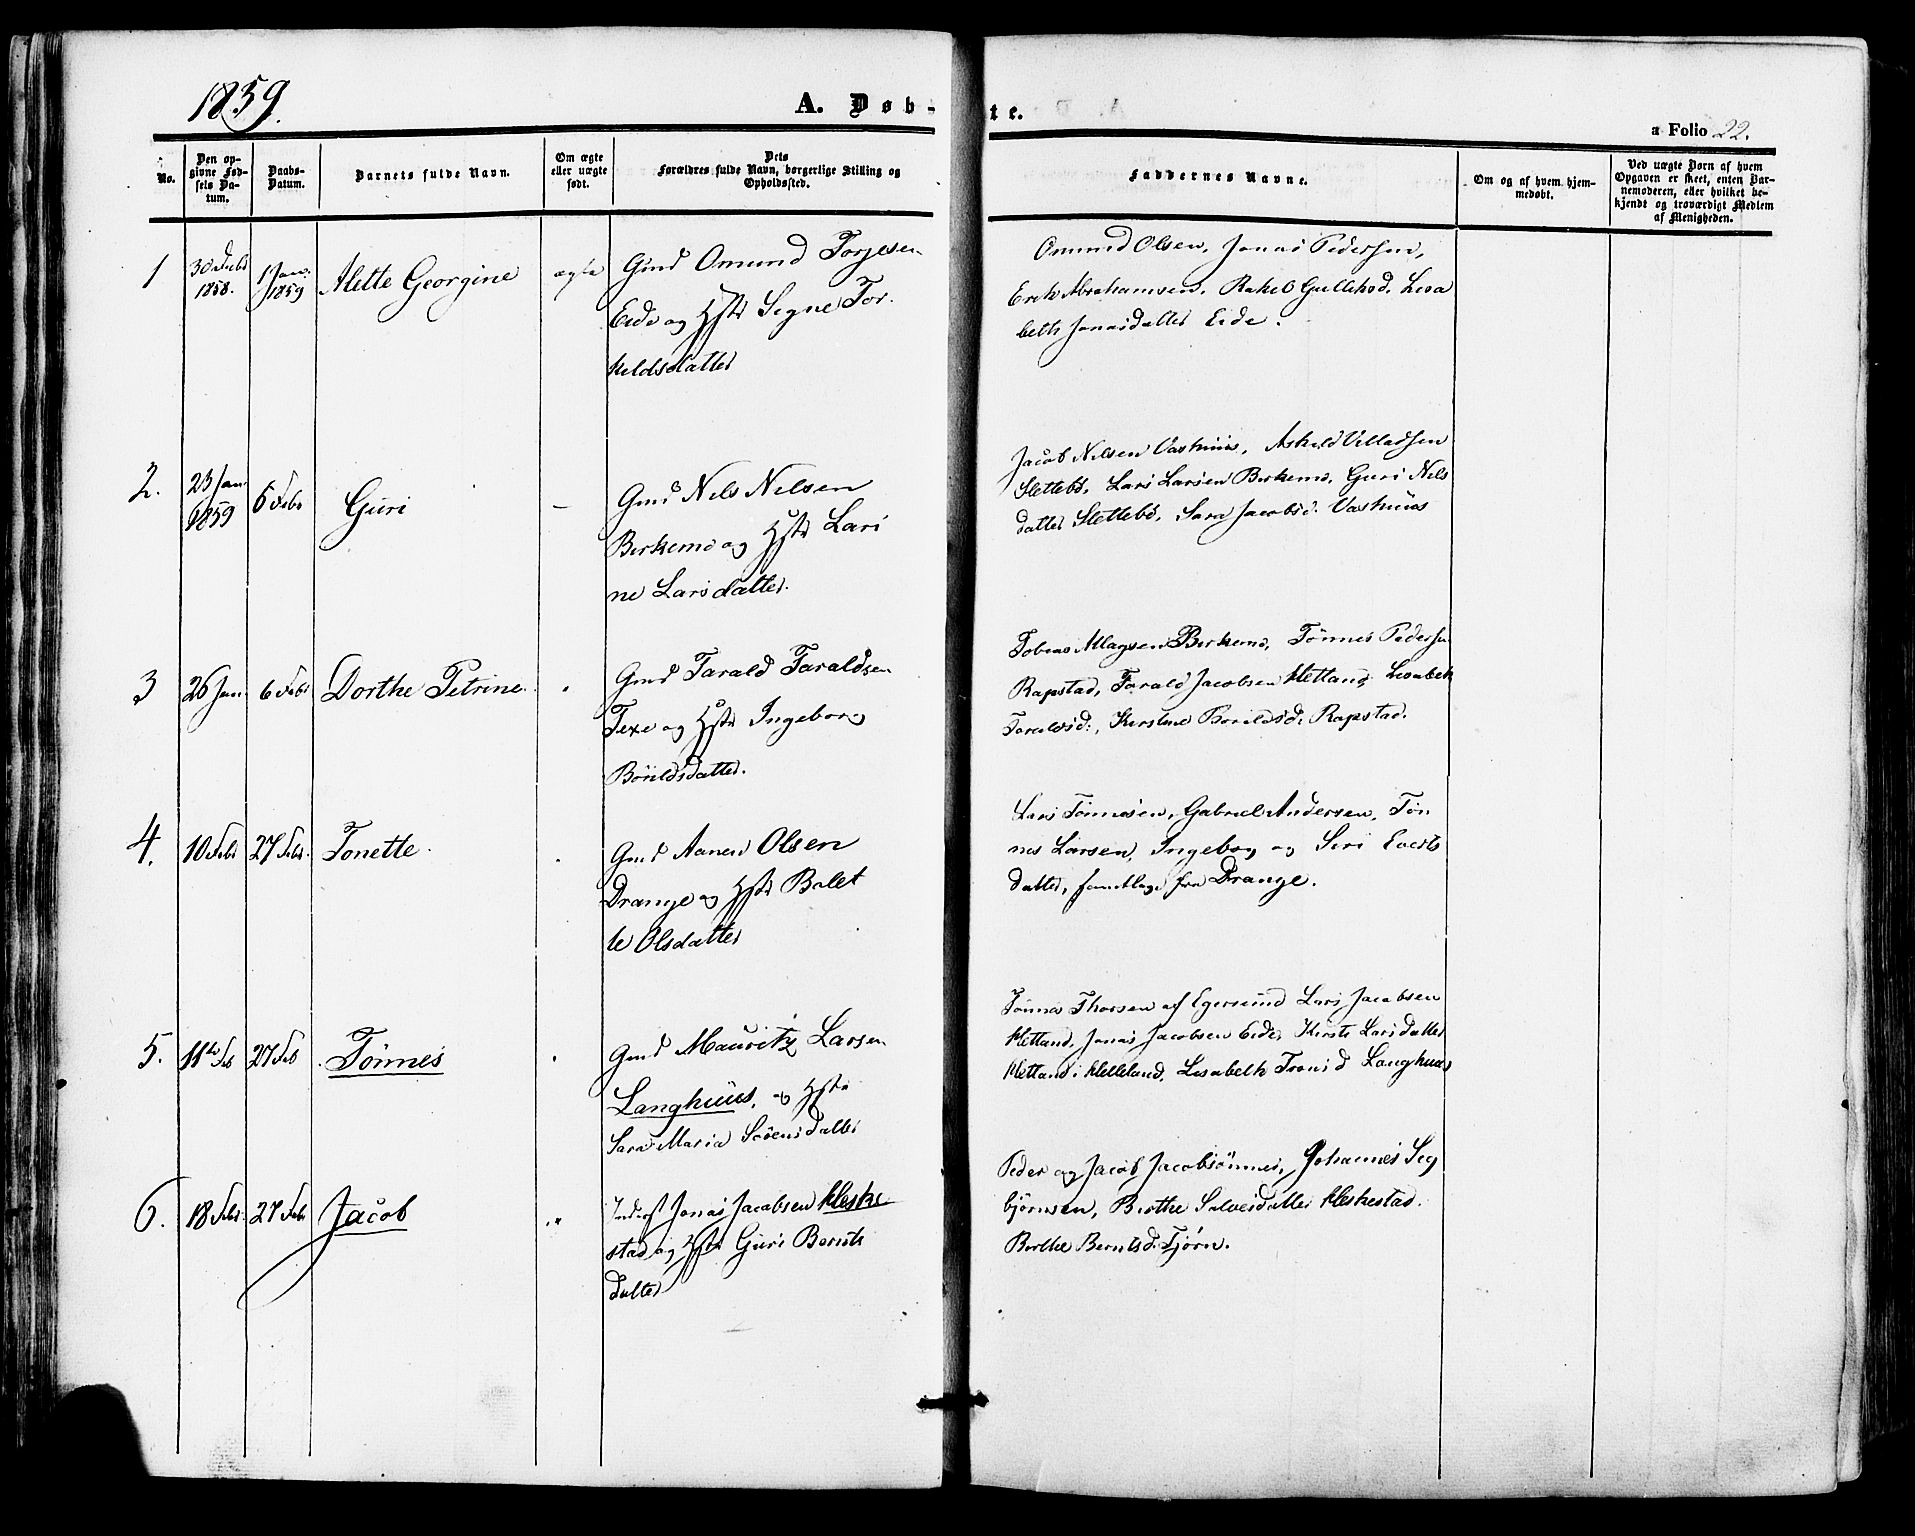 1859.
A. Døb-
te.
a Folio 22.
No.
Den op-
givne Fød-
sels Da-
tum.
Daabs-
Datum.
Barnets fulde Navn.
Om ægte
eller uægte
født.
Dets
Forældres fulde Navn, borgerlige Stilling og
Opholdssted.
Faddernes Navne.
Om og af hvem hjem-
medøbt.
Ved uægte Børn af hvem
Opgaven er skeet, enten Bar-
nemoderen, eller hvilket be-
kjendt og troværdigt Medlem
af Menigheden.
1
1858.
1 Jan.
1859
Alette Georgine
ægte
Gmd Omund Torjesen
Eide og Hstr Segne Tor
keldsdatter
Omund Olsen, Jonas Pedersen,
Erik Abrahamsen, Rakel Gullehod, Lisa
beth Jonasdatter Eide.
2.
23 Jan.
1859
6 Febr
Guri
–
Gmd Nels Nelsen
Birkemo og Hstr Lari
ne Larsdatter.
Jacob Nelsen Vashuus, Askeld Villadsen
Slettebö, Lars Larsen Birkemo, Guri Nels
datter Slettebö, Sara Jacobsd. Vashuus
3
26 Jan
6 Febr
Dorthe Petrine
Gmd Tarald Taraldsen
Texe og Hstr Ingeborg
Böruldsdatter.
Tobias Magsen Birkemo, Tönnes Pedersen
Rapstad, Tarald Jacobsen Hetland, Lisabeth
Taraldsd:, Kirstine Boruldsd. Rapstad.
4.
10 Febr
27 Febr.
Tonette.
Gmd Aanen Olsen
Drange og Hstr Bolet
te Olsdatter
Lars Tönnesen, Gabriel Andersen, Tön
nes Larsen, Ingeborg og Siri Everts
datter, samtlige fra Drange.
5.
11te Feb
27 Feb
Tönnes
Gmd Mauritz Larsen
Langhuus, og Hstr
Sara Maria Sörensdatter
Tönnes Thorsen af Egersund Lars Jacobsen
Hetland, Jonas Jacobsen Eide, Kirsti Larsdatter
Hetland i Helleland, Lisabeth Tronsd Langhuus
6.
18 Febr.
27 Febr
Jacob
Inderst Jonas Jacobsen Heske
stad og Hstr Guri Bernts
datter
Peder og Jacob Jacobsönner, Johannes Seg
björnsen, Berthe Salvesdatter Heskestad.
Berthe Berntsd. Tjörn.